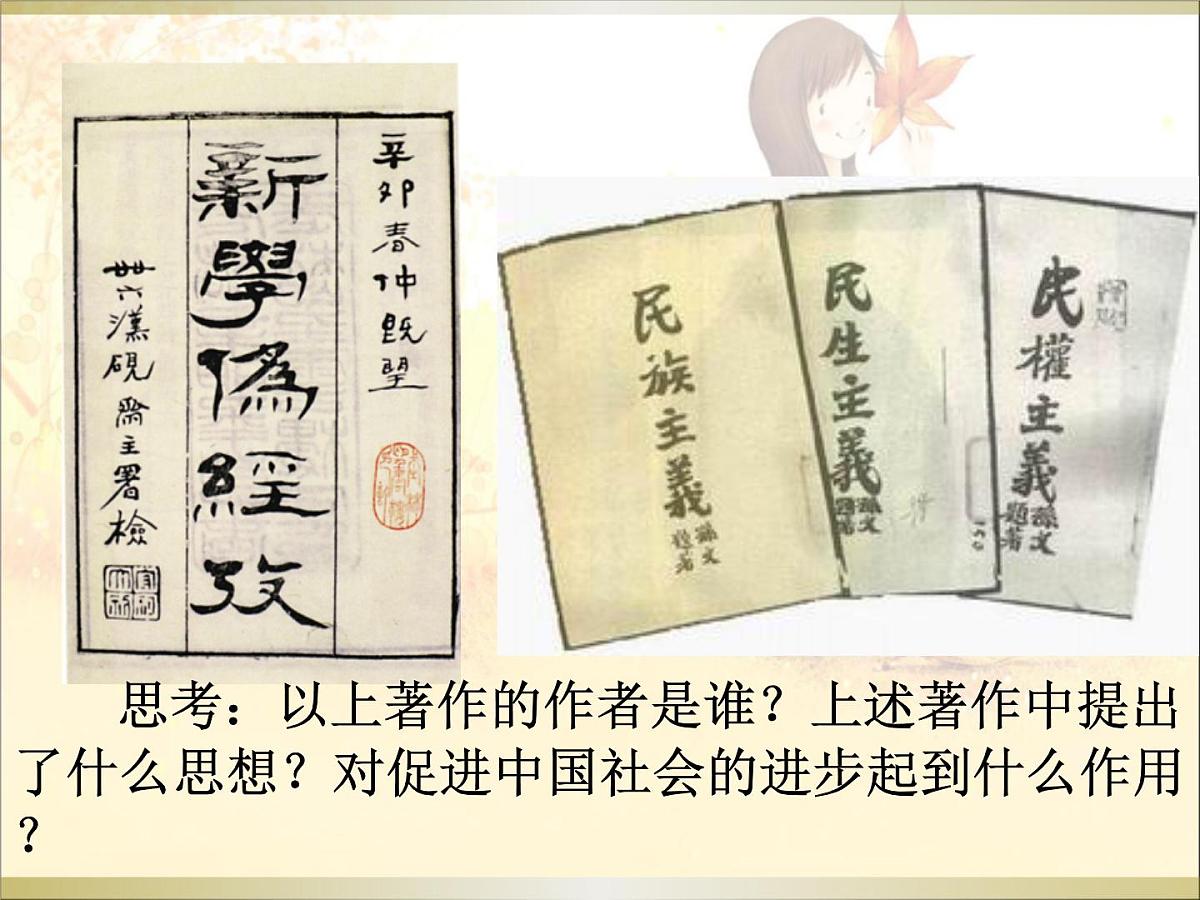 辛卯春仲既望
新學偽經攷
卌六漢硯齋主署檢
民族主義
孫文
題著
民生主義
孫文
民權主義
孫文
題著
思考：以上著作的作者是谁？上述著作中提出
了什么思想？对促进中国社会的进步起到什么作用
？